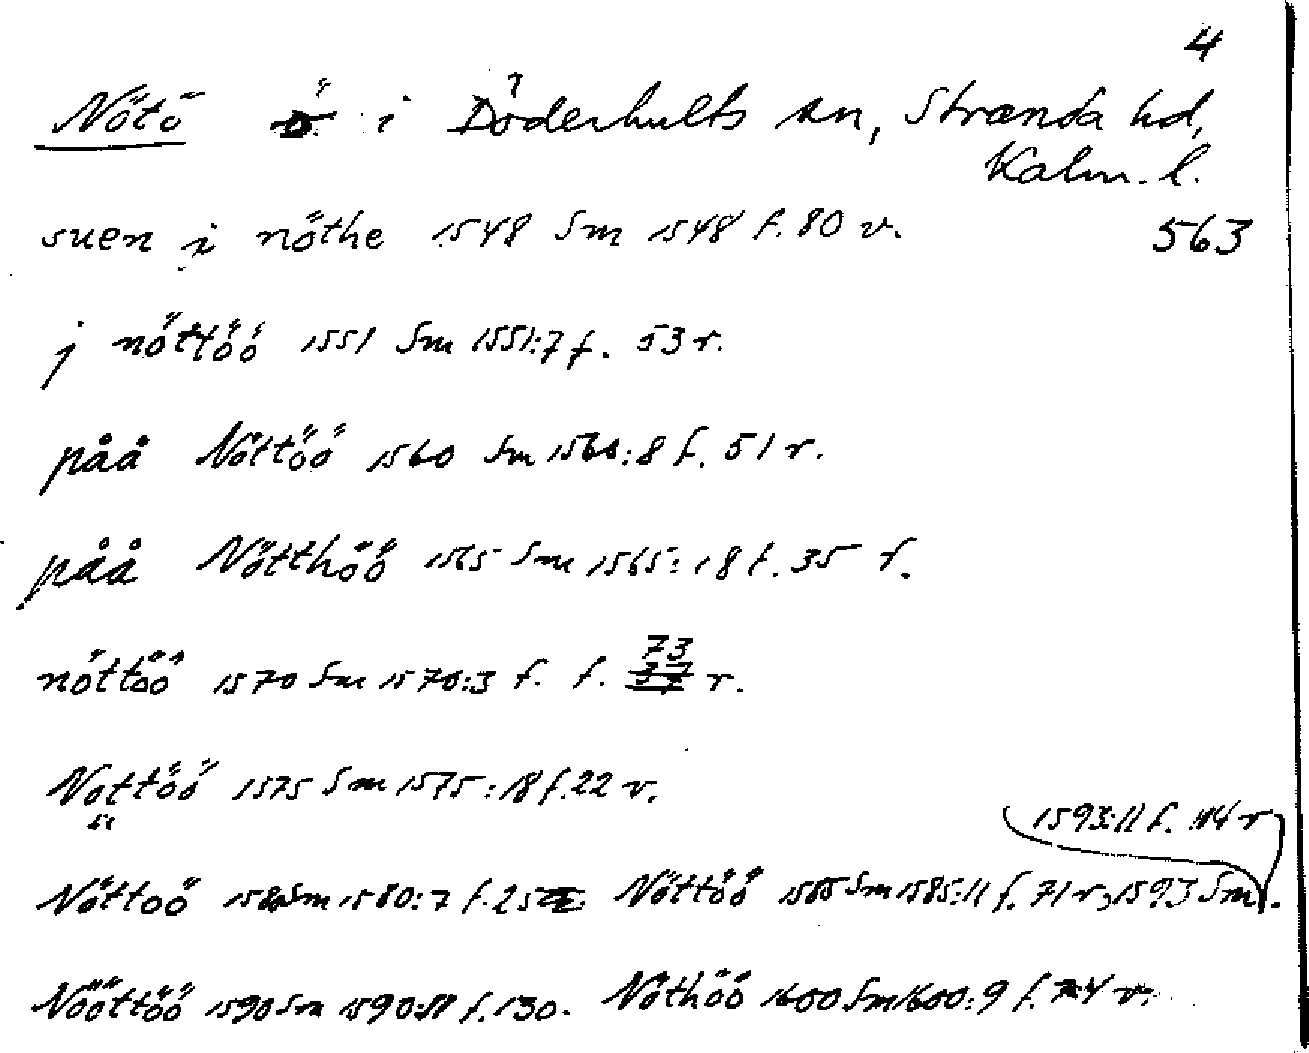 4
Nötö ö i Döderhults sn, Stranda hd,
Kalm. l.
suen i nöthe 1548 Sm 1548 f. 80 v. 563
j nöttöö 1551 Sm 1551:7 f. 53 r.
påå Nöttöö 1560 Sm 1560:8 f. 51 r.
påå Nötthöö 1565 Sm 1565:18 f. 35 r.
73
nöttöö 1570 Sm 1570:3 f. f. 37 r.
Nottöö 1575 Sm 1575:18 f. 22 v.
1593:11 f. 114 r
Nöttoö 1580 Sm 1580:7 f. 25 Nöttöö 1585 Sm 1585:11 f. 71 r, 1593 Sm.
Nööttöö 1590 Sm 1590:11 f. 130. Nöthöö 1600 Sm 1600:9 f. 74 v.